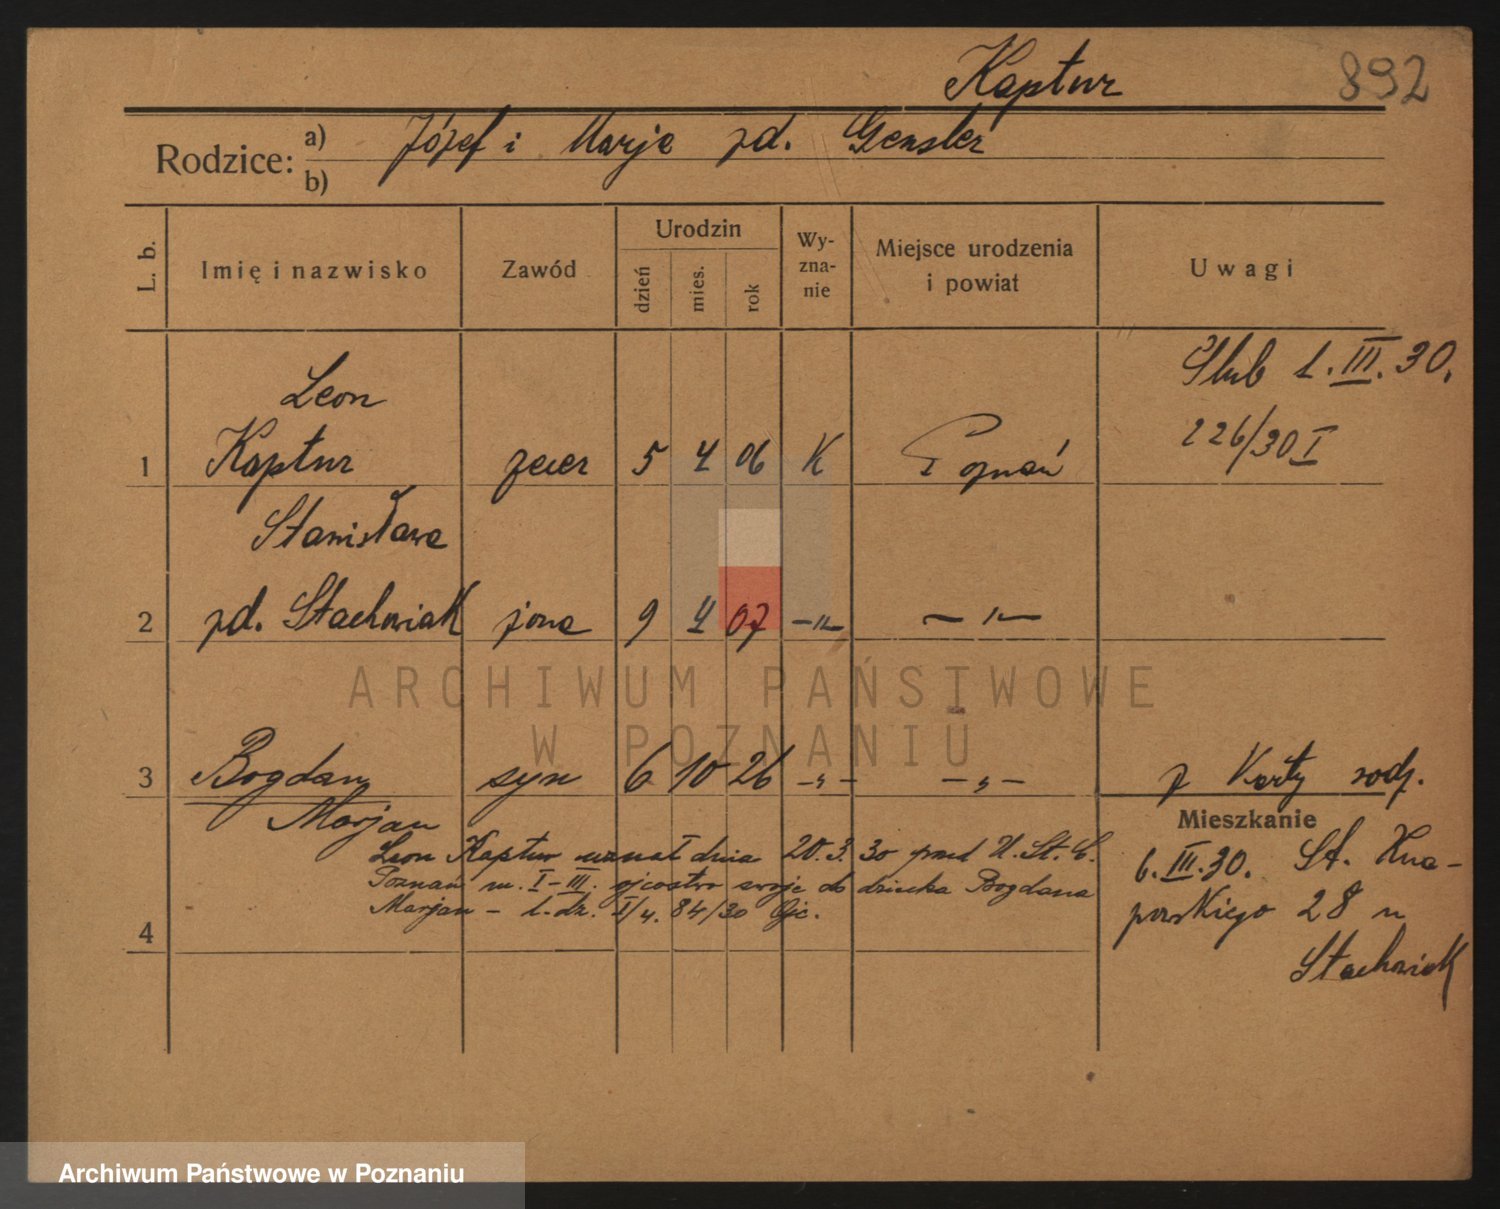 Kaptur 892
Rodzice: a) Józef i Marje zd. Gensler
b)
L. b. Imię i nazwisko Zawód Urodzin dzień mies. rok Wyznanie Miejsce urodzenia i powiat Uwagi
Ślub 1.III.30.
Leon
226/30 I
1 Kaptur zecer 5 4 06 K Poznań
Stanisława
2 zd. Stachowiak żona 9 4 07 -"- -"-
ARCHIWUM PAŃSTWOWE
W POZNANIU
3 Bogdan syn 6 10 26 -"- -"- z Karty rodz.
Marjan
Mieszkanie
Leon Kaptur uznał dnia 20.3.30 przed U. St. C.
Poznań m. I-III. ojcostwo swoje do dziecka Bogdana
Marjan - l. dz. I/4. 84/30 Ojc.
4
6.III.30. St. Kna-
powskiego 28 u
Stachowiak
Archiwum Państwowe w Poznaniu